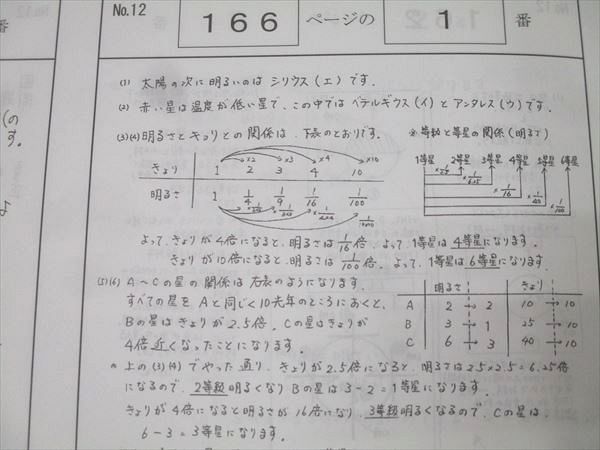 No.12
166 ページの 1 番
番
(1) 太陽の次に明るいのは シリウス(エ)です.
(2) 赤い星は温度が低い星で、この中では ベテルギウス(イ)と アンタレス(ウ)です.
(3)(4)明るさときょりとの関係は、下表のとおりです.
※等級と等星の関係(明るさ)
1等星 2等星 3等星 4等星 5等星 6等星
×2 ×3 ×4 ×10
きょり 1 2 3 4 10
明るさ 1 1/4 1/9 1/16 1/100
×1/16 ×1/40 ×1/100
よって、きょりが4倍になると、明るさは 1/16 倍、よって、1等星は 4等星になります.
きょりが10倍になると、明るさは 1/100 倍、よって、1等星は 6等星になります.
(5)(6) A~Cの星の関係は右表のようになります.
すべての星を Aと同じく10光年のところにおくと、
Bの星はきょりが2.5倍、Cの星はきょりが
4倍近くなったことになります.
明るさ きょり
A 2 → 2 10 → 10
B 3 → 1 25 → 10
C 6 → 3 40 → 10
上の(3)(4)でやった通り、きょりが2.5倍になると、明るさは2.5×2.5=6.25倍
になるので、2等級明るくなり Bの星は3-2=1等星になります.
きょりが4倍になると明るさが16倍になり、3等級明るくなるので、Cの星は、
6-3=3等星になります.